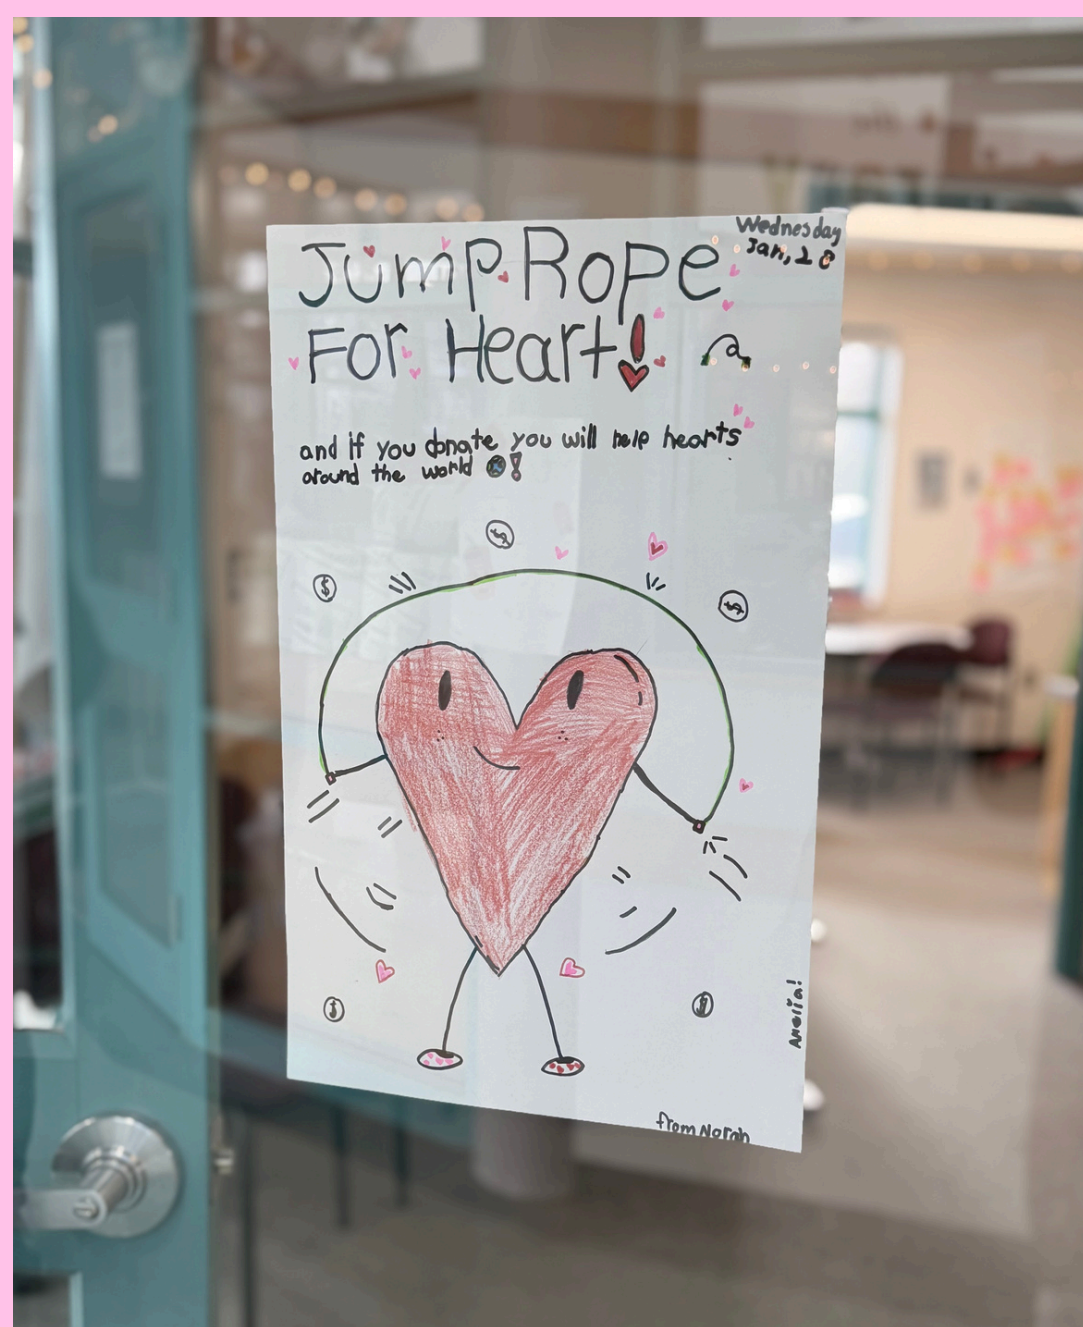 Wednesday
Jan, 28
Jump Rope
For Heart!
and if you donate you will help hearts
around the world !
$
$
$
$
Amelia!
from Norah